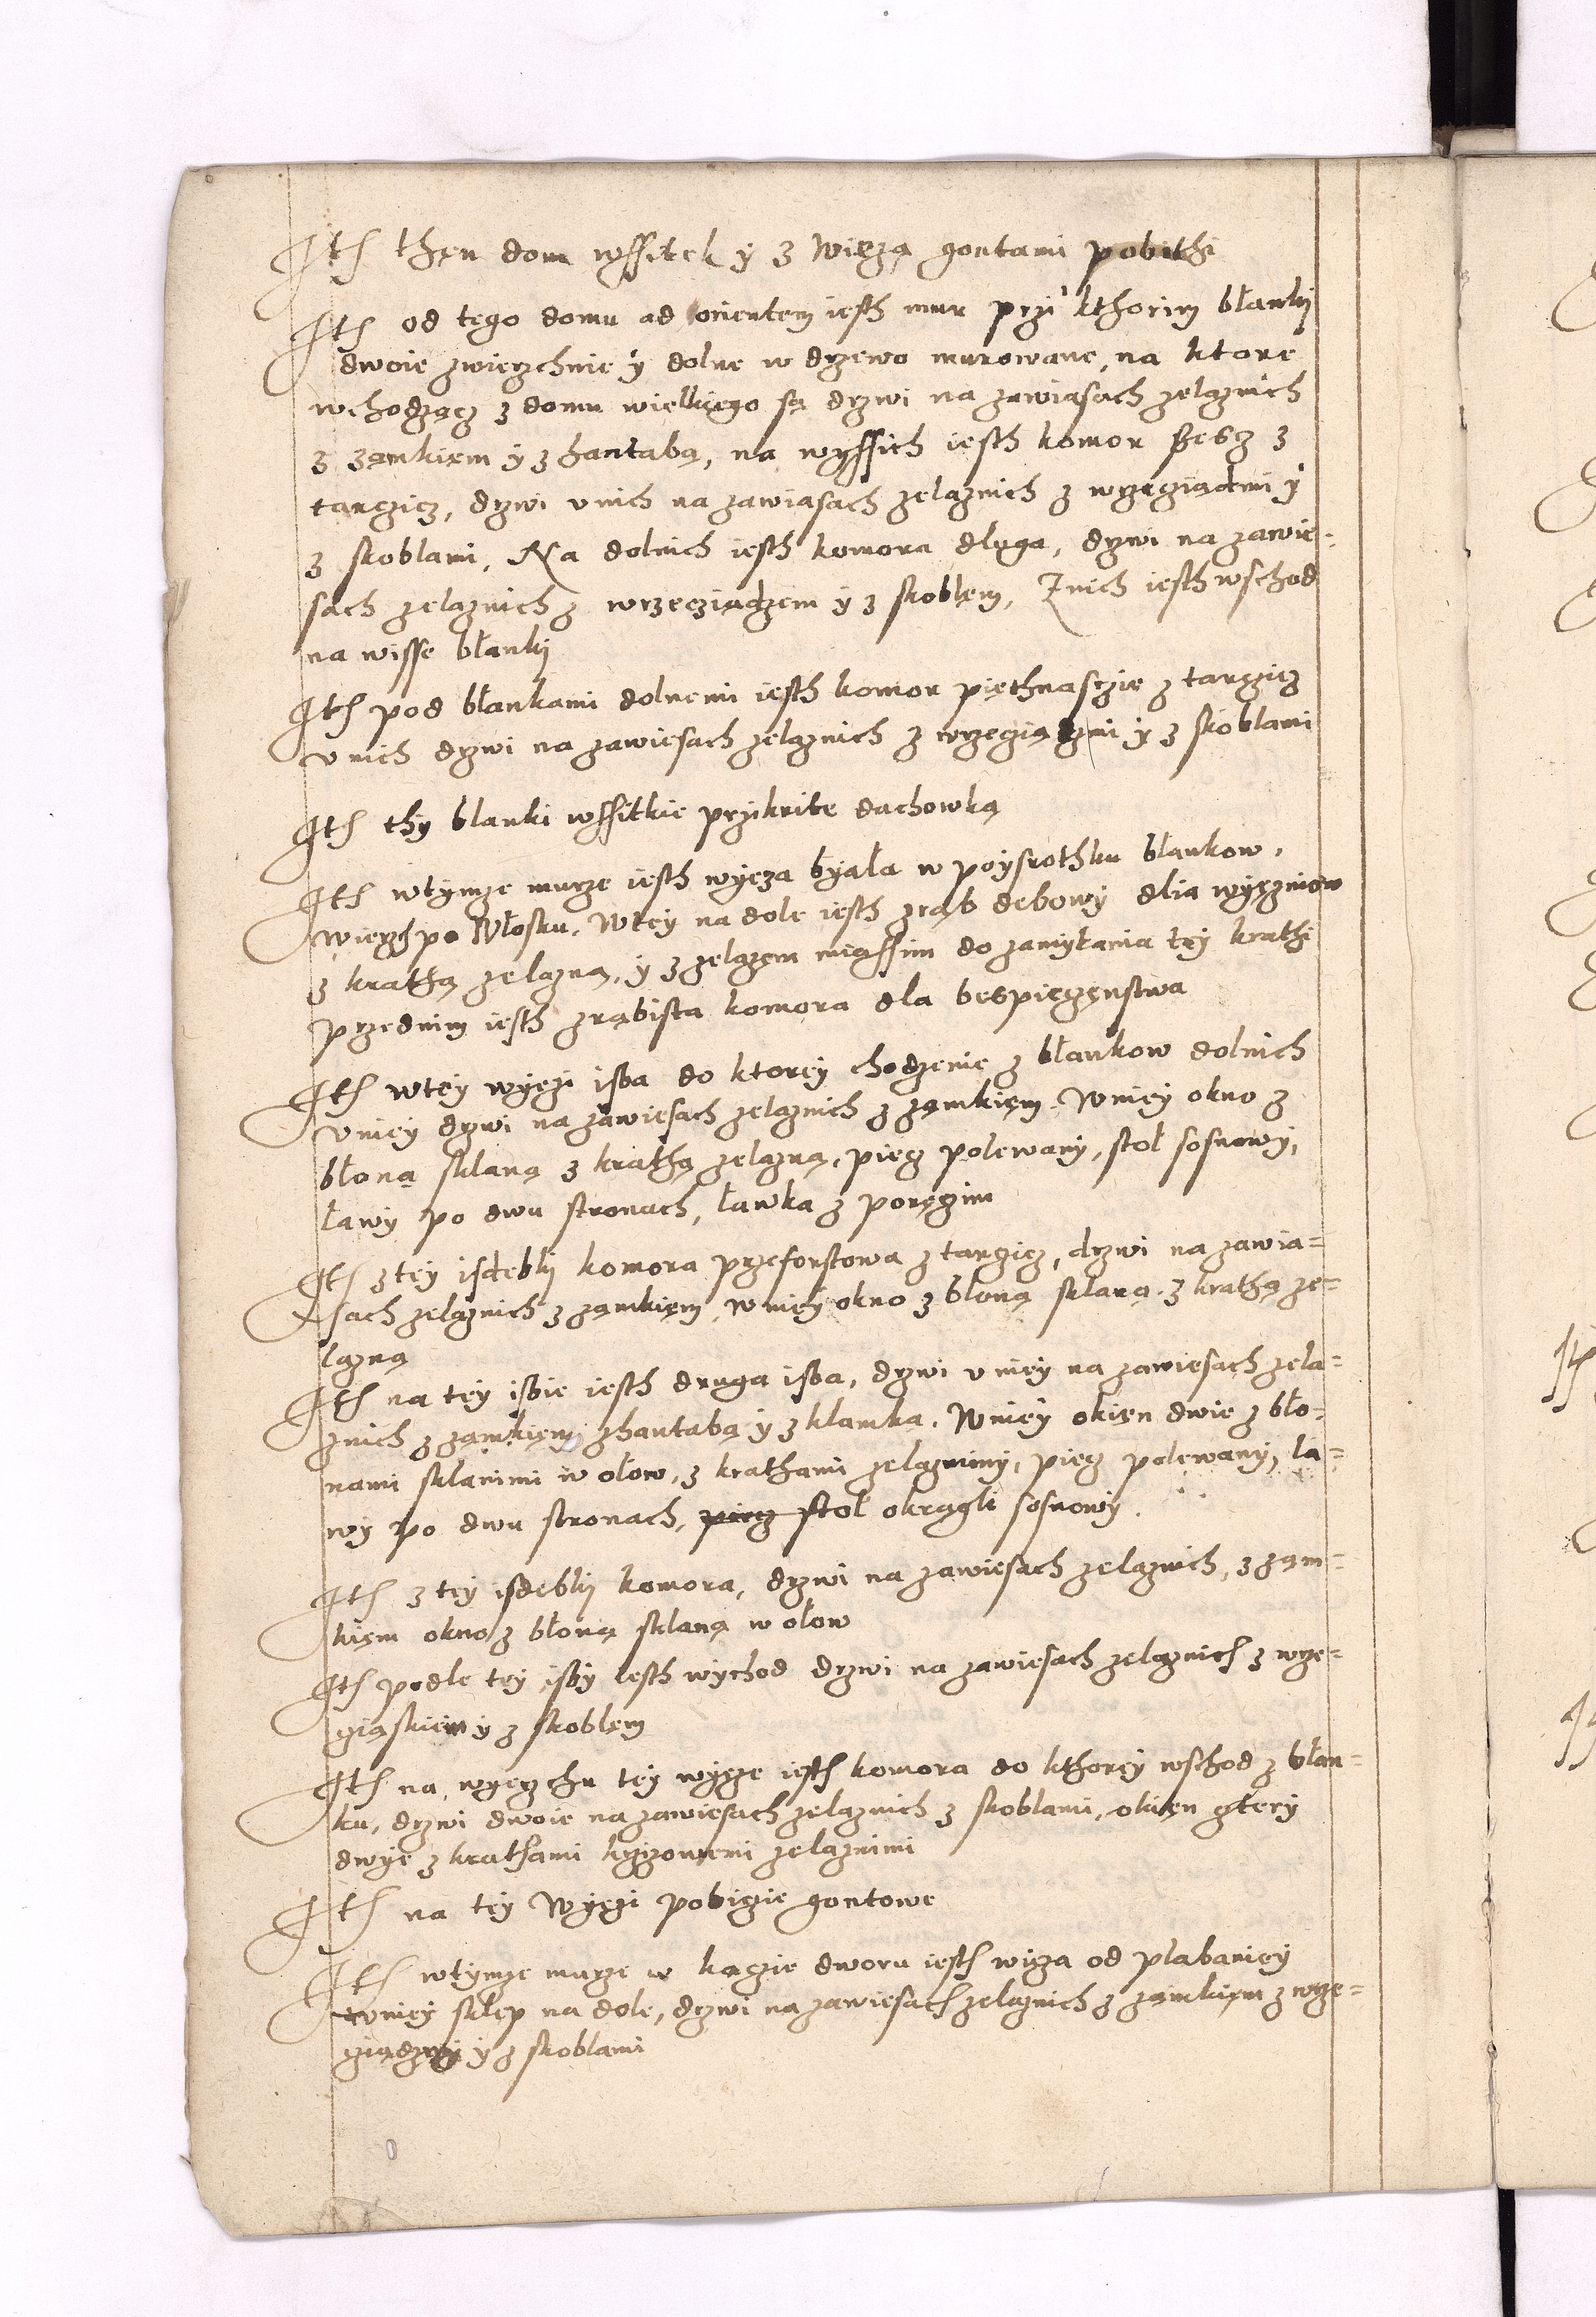 Ith then dom wssitek y z wiezą gontami pobithi
Ith od tego domu ad orientem iesth mur przi kthorim błanki
dwoie zwierzchnie y dolne w drzewo murowane, na ktore
wchodzącz z domu wielkiego są drzwi na zawiasach zelaznich
z zamkiem y z hantabą, na wyssich iesth komor sescz z
tarczicz, drzwi v nich na zawiasach zelaznich z wrzeciadzmi y
z skoblami, Na dolnich iesth komora dluga, drzwi na zawie-
sach zelaznich z wrzecziadzem y z skoblem, Z nich iesth wschod
na wisse błanki
Ith pod błankami dolnemi iesth komor piethnasczie z tarczicz
v nich drzwi na zawiesach zelaznich z wrzecziadzmi y z skoblami
Ith thy blanki wssitkie przikrite dachowką
Ith wtymze murze iesth wyeza byała w poysrothku błankow,
wierzch po Włosku. W tey na dole iesth zrąb debowy dlia wyęzniow
z krathą zelazną, y z zelazem miąssim do zamykania tey krathi
przednim iesth zrąbista komora dla bespieczenstwa
Ith wtey wyezi isba do ktorey chodzenie z błankow dolnich
v niey drzwi na zawiesach zelaznich z zamkiem. W niey okno z
błoną sklaną z krathą zelazną, piecz polewany, stoł sosnowy,
ławy po dwu stronach, ławka z poręczim
Ith z tey isdebki komora przeforstowa z tarczicz, drzwi na zawia-
sach zelaznich z zamkiem, w niey okno z bloną sklaną z krathą ze-
lazną
Ith na tey isbie iesth druga isba, drzwi v niey na zawiesach zela-
znich z zamkiem z hantabą y z klamką. W niey okien dwie z bło-
nami sklanimi w ołow, z krathami zelaznimy, piecz polewany, la-
wy po dwu stronach, piecz stoł okrągli sosnowy.
Ith z tey isdebki komora, drzwi na zawiesach zelaznich, z zam-
kiem okno z błoną sklaną w ołow
Ith podle tey isby iesth wychod drzwi na zawiesach zelaznich z wrze-
cziąskiem y z skoblem
Ith na wyerzchu tey wyeze iesth komora do kthorey wschod z błan-
ku, drzwi dwoie na zawiesach zelaznich z skoblami, okien cztery
dwye z krathami krzizowemi zelaznimi
Ith na tey Wyezi pobiczie gontowe
Ith wtymze murze w kączie dworu iesth wieza od plabaniey
w niey sklep na dole, drzwi na zawiesach zelaznich z zamkiem z wrze-
cziądzmy y z skoblami